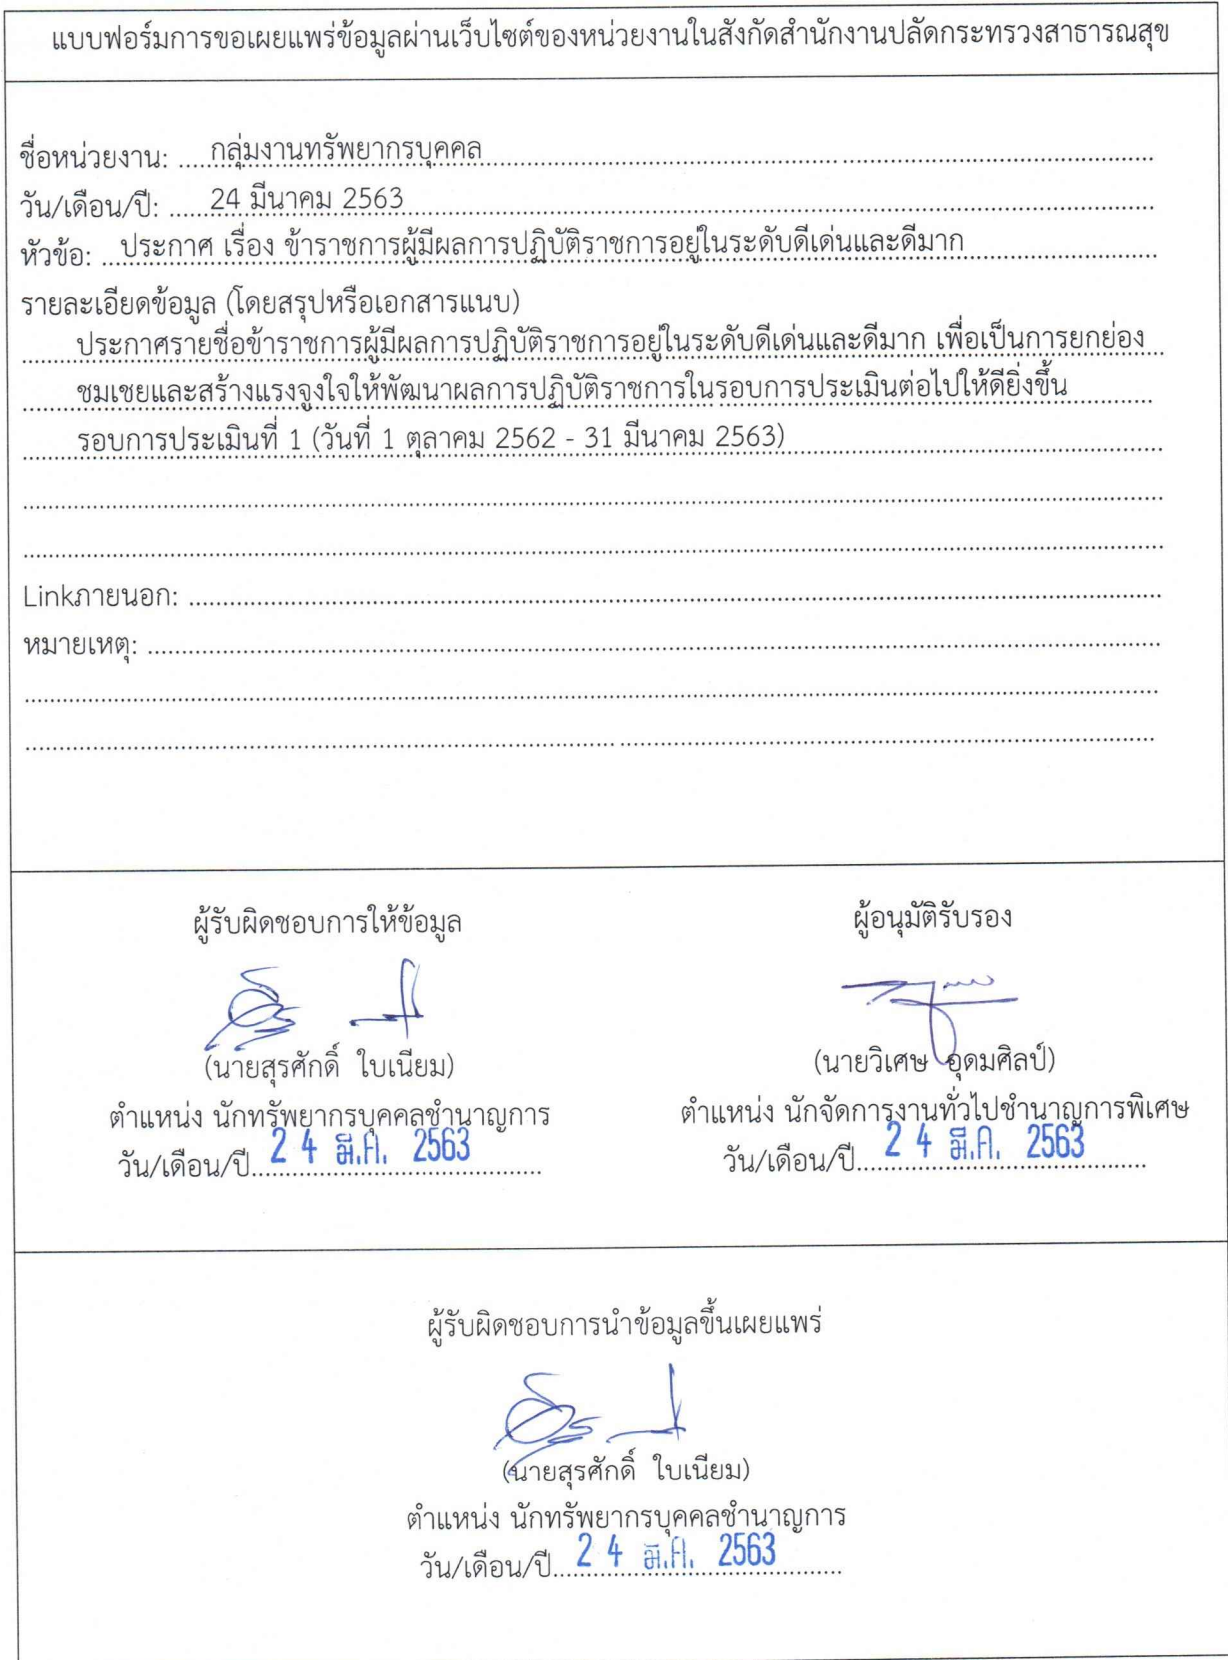 แบบฟอร์มการขอเผยแพร่ข้อมูลผ่านเว็บไซต์ของหน่วยงานในสังกัดสำนักงานปลัดกระทรวงสาธารณสุข
ชื่อหน่วยงาน: กลุ่มงานทรัพยากรบุคคล
วัน/เดือน/ปี: 24 มีนาคม 2563
หัวข้อ: ประกาศ เรื่อง ข้าราชการผู้มีผลการปฏิบัติราชการอยู่ในระดับดีเด่นและดีมาก
รายละเอียดข้อมูล (โดยสรุปหรือเอกสารแนบ)
ประกาศรายชื่อข้าราชการผู้มีผลการปฏิบัติราชการอยู่ในระดับดีเด่นและดีมาก เพื่อเป็นการยกย่อง
ชมเชยและสร้างแรงจูงใจให้พัฒนาผลการปฏิบัติราชการในรอบการประเมินต่อไปให้ดียิ่งขึ้น
รอบการประเมินที่ 1 (วันที่ 1 ตุลาคม 2562 - 31 มีนาคม 2563)
Linkภายนอก:
หมายเหตุ:
ผู้รับผิดชอบการให้ข้อมูล
(นายสุรศักดิ์ ใบเนียม)
ตำแหน่ง นักทรัพยากรบุคคลชำนาญการ
วัน/เดือน/ปี 24 มี.ค. 2563
ผู้อนุมัติรับรอง
(นายวิเศษ อุดมศิลป์)
ตำแหน่ง นักจัดการงานทั่วไปชำนาญการพิเศษ
วัน/เดือน/ปี 24 มี.ค. 2563
ผู้รับผิดชอบการนำข้อมูลขึ้นเผยแพร่
(นายสุรศักดิ์ ใบเนียม)
ตำแหน่ง นักทรัพยากรบุคคลชำนาญการ
วัน/เดือน/ปี 24 มี.ค. 2563